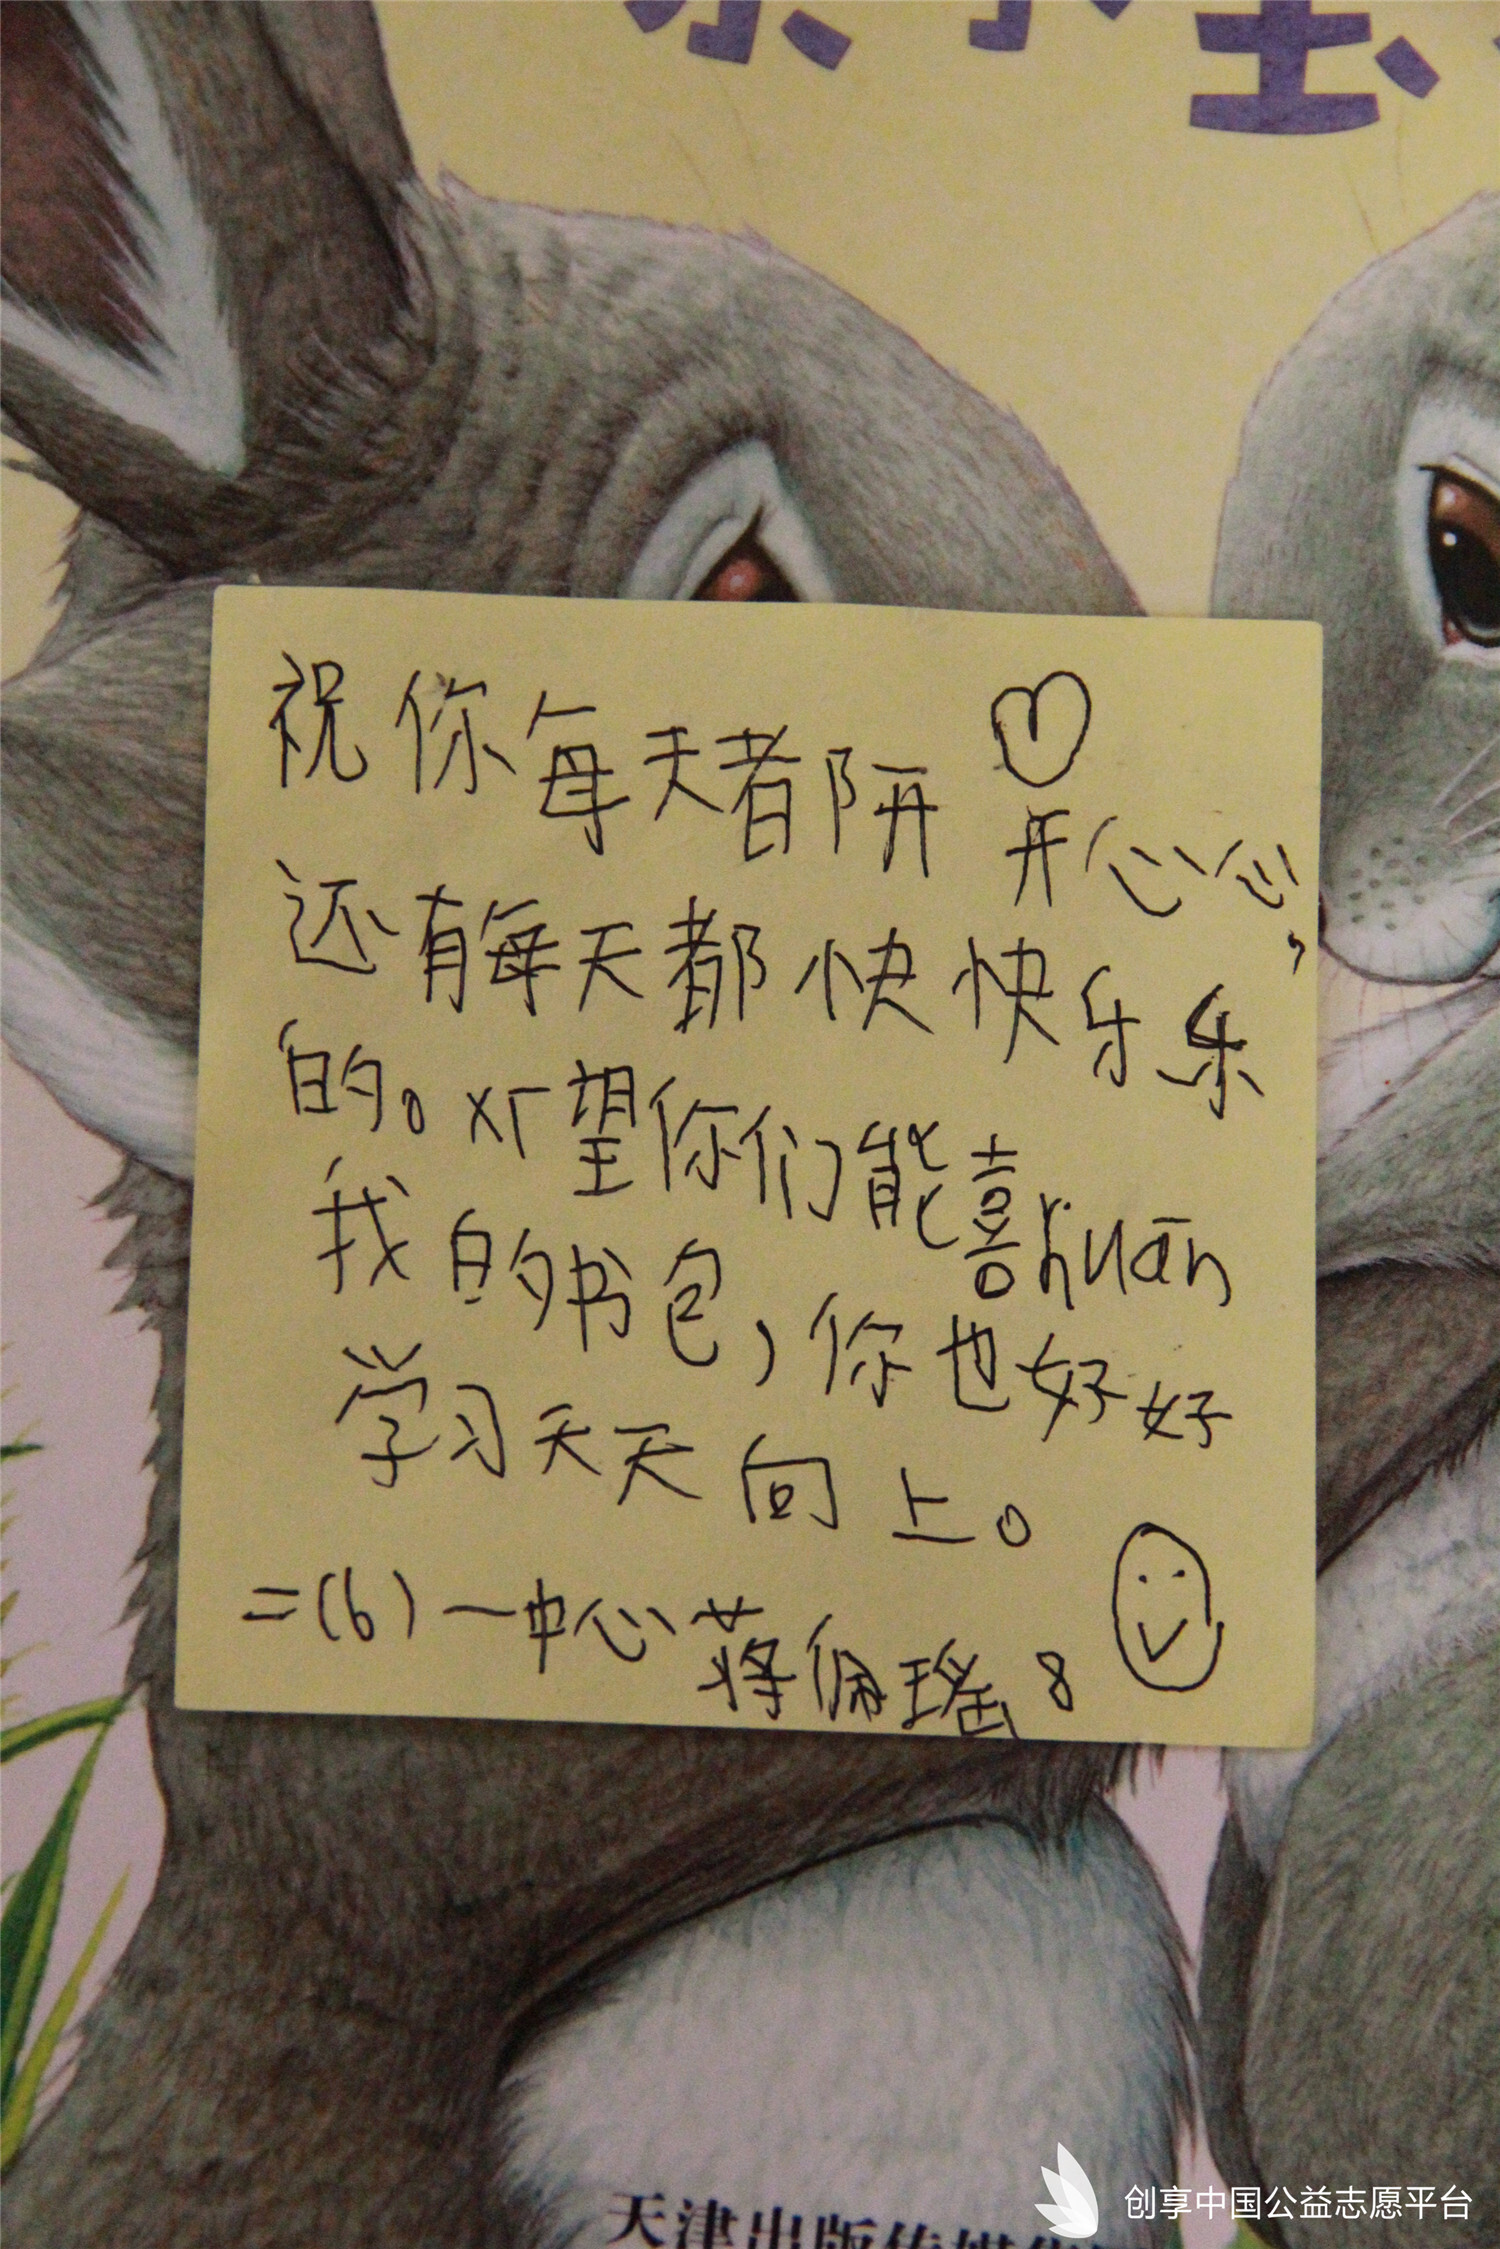 祝你每天都开
开心心，
还有每天都快快乐乐
的。希望你们能喜huān
我的书包，你也好好
学习天天向上。
二(6)一中心 蒋佩瑶 8
天津出版传媒
创享中国公益志愿平台